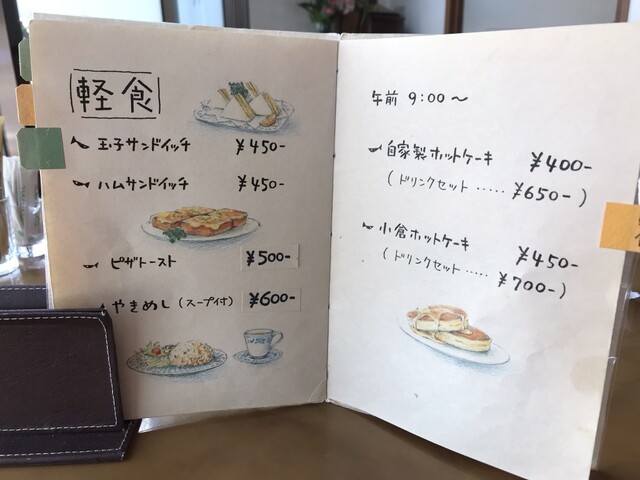 軽食
玉子サンドイッチ ¥450-
ハムサンドイッチ ¥450-
ピザトースト ¥500-
やきめし（スープ付） ¥600-
午前 9:00〜
自家製ホットケーキ ¥400-
（ドリンクセット ‥‥‥ ¥650-）
小倉ホットケーキ ¥450-
（ドリンクセット ‥‥‥ ¥700-）